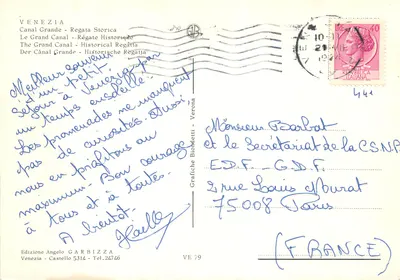 VENEZIA
Canal Grande - Regata Storica
Le Grand Canal - Régate Historique
The Grand Canal - Historical Regatta
Der Canal Grande - Historische Regatta
Meilleur souvenir
d'un petit
séjour à Venezia par
un temps ensoleillé.
Les promenades ne manquent
pas de curiosités aussi,
nous en profitons au
maximum. Bon courage
à tous et à toutes.
A bientôt.
Edizione Angelo GARBIZZA
Venezia - Castello 5314 - Tel. 24746
VE 79
Grafiche Biondetti - Verona
10-1
40
Monsieur Barbat
et le Secrétariat de la C.S.N.P
E.D.F - G.D.F.
2 rue Louis Murat
75008 Paris
(FRANCE)